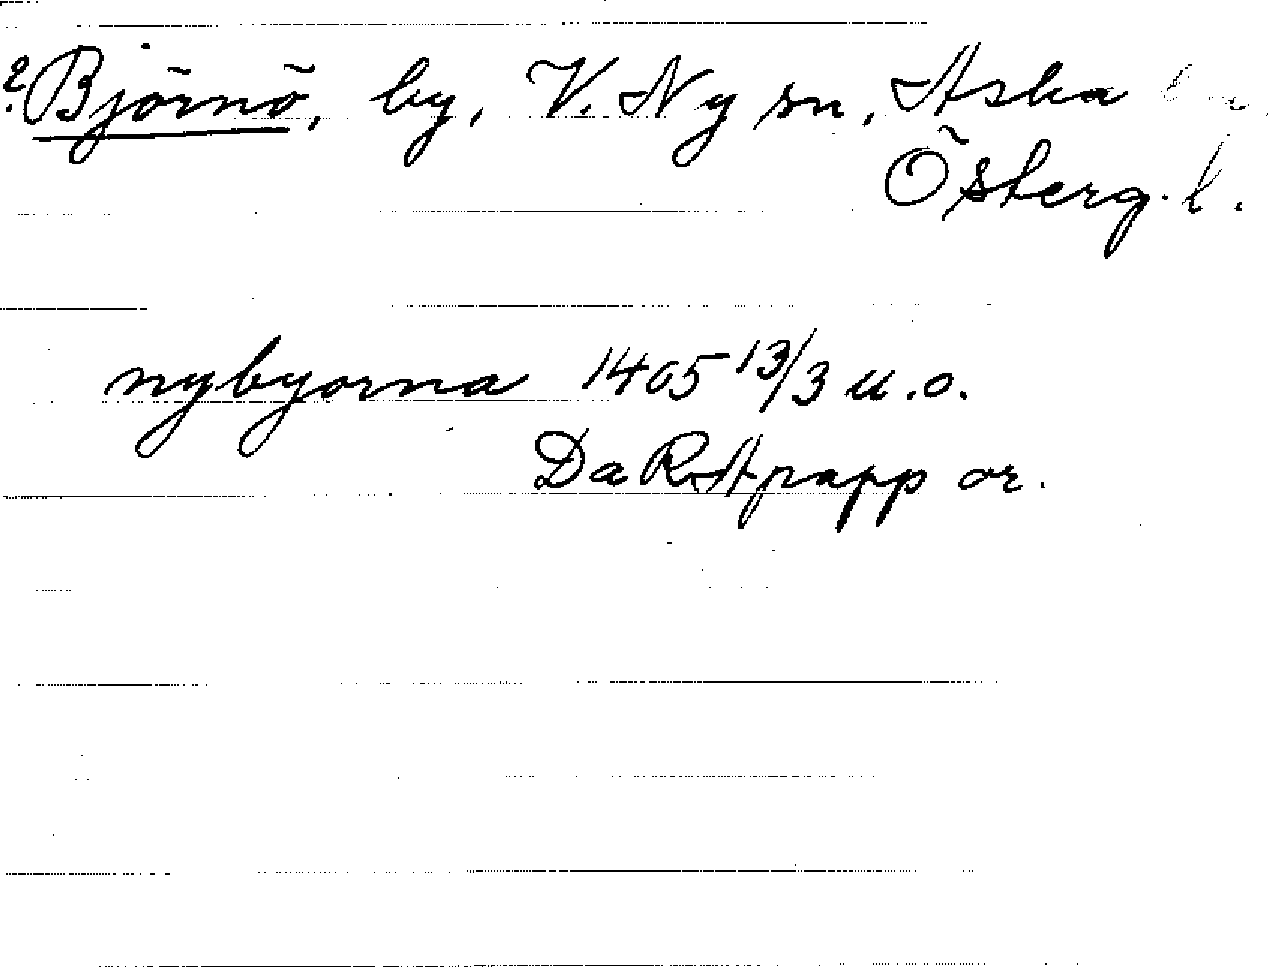 ? Björnö, by, V. Ny sn, Aska
Österg. l.
nybyorna 1405 13/3 u.o.
Da RApapp or.